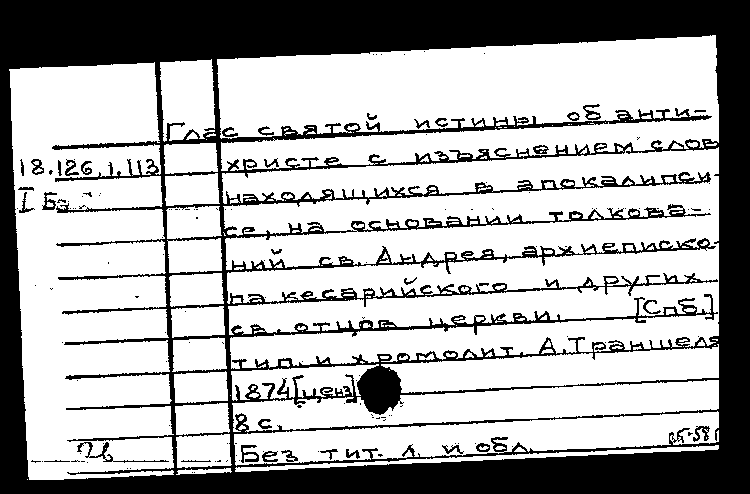 Глас святой истины об анти-
18.126.1.113 христе с изъяснением слов
I находящихся в апокалипси-
се, на основании толкова-
ний св. Андрея, архиеписко-
па кесарийского и других
св. отцов церкви. [Спб.]
тип. и хромолит. А.Траншеля
1874[ценз]
8 с.
Без тит. л. и обл.